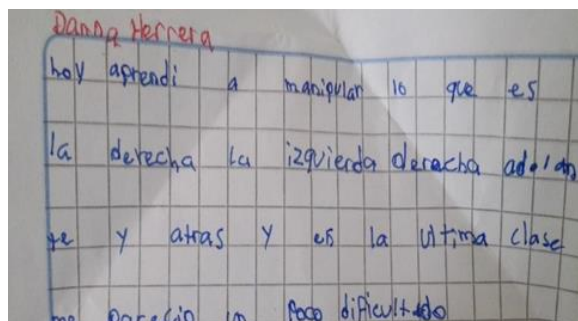 Danna Herrera
hoy aprendi a manipular lo que es
la derecha la izquierda derecha adelan
te y atras y es la ultima clase
me parecio un poco dificultado